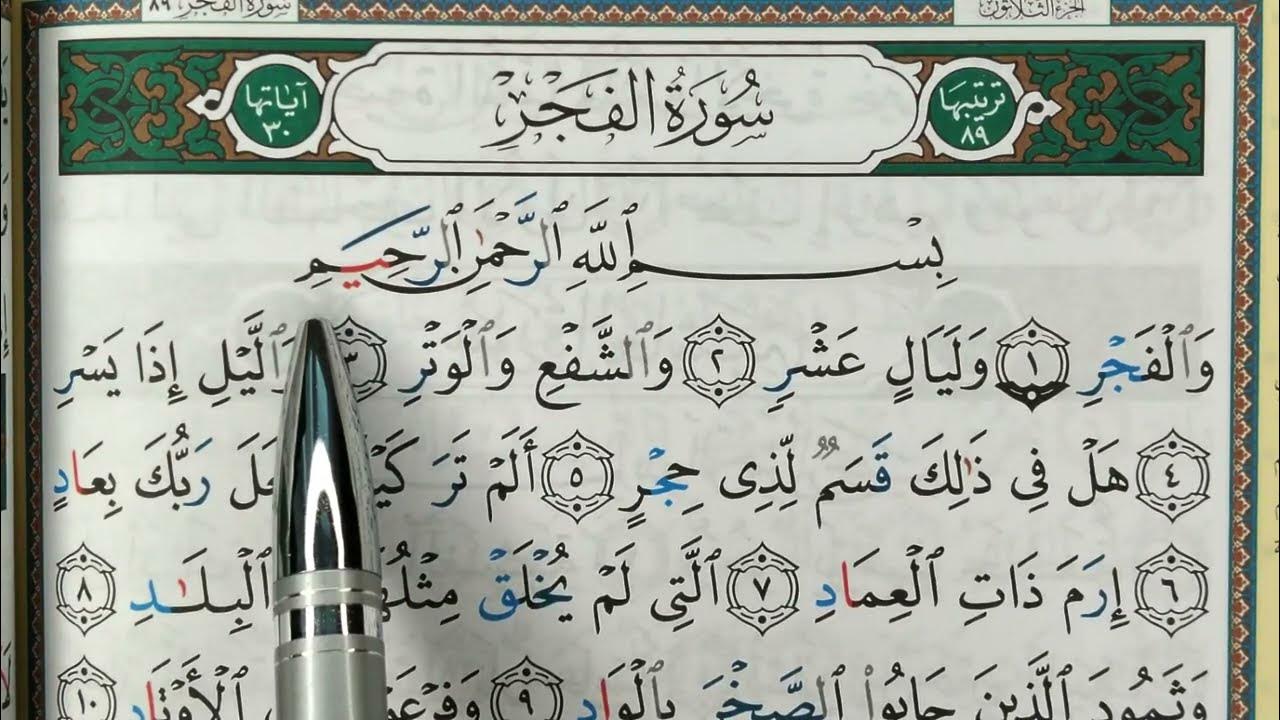 سورة الفجر ٨٩
الجزء الثلاثون
ترتيبها ٨٩
سُورَةُ الفَجْرِ
آياتها ٣٠
بِسْمِ ٱللَّهِ ٱلرَّحْمَٰنِ ٱلرَّحِيمِ
وَٱلْفَجْرِ ١ وَلَيَالٍ عَشْرٍ ٢ وَٱلشَّفْعِ وَٱلْوَتْرِ ٣ وَٱلَّيْلِ إِذَا يَسْرِ
٤ هَلْ فِى ذَٰلِكَ قَسَمٌ لِّذِى حِجْرٍ ٥ أَلَمْ تَرَ رَبُّكَ بِعَادٍ
٦ إِرَمَ ذَاتِ ٱلْعِمَادِ ٧ ٱلَّتِى لَمْ يُخْلَقْ ٱلْبِلَٰدِ ٨
وَثَمُودَ ٱلَّذِينَ جَابُوا۟ ٱلصَّخْرَ بِٱلْوَادِ ٩ ٱلْأَوْتَادِ ١٠